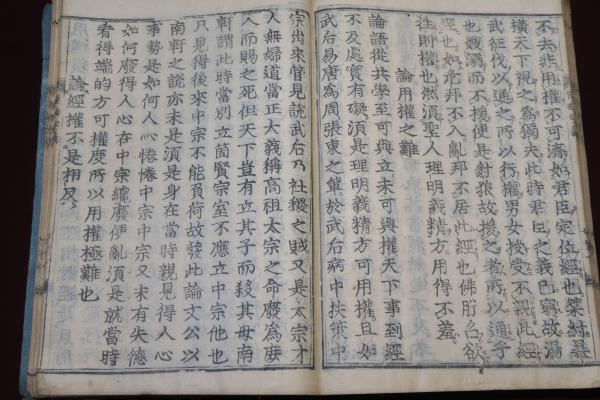 不去非用權不可濟如君臣定位經也桀紂暴
橫天下視之爲獨夫此時君臣之義已窮故湯
武征伐以通之所以行權男女授受不親此經
也嫂溺而不援便是豺狼故援之者所以通乎
經也如危邦不入亂邦不居此經也佛肸召欲
往則權也然須聖人理明義精方用得不差
論用權之難
論語從共學至可與立未可與權天下事到經
不及處實有礙須是理明義精方可用權且如
武后易唐爲周張柬之輩於武后病中扶策中
宗出來管見說武后乃社稷之賊又是太宗才
人無婦道當正大義稱高祖太宗之命廢爲庶
人而賜之死但天下豈有立其子而殺其母南
軒謂此時當別立箇賢宗室不應立中宗他也
只見得後來中宗不能負荷故發此論文公以
南軒之說亦未是須是身在當時親見得人心
事勢是如何人心惓惓中宗中宗又未有失德
如何廢得人心在中宗纔廢便亂須是就當時
看得端的方可權度所以用權極難也
論經權不是相反